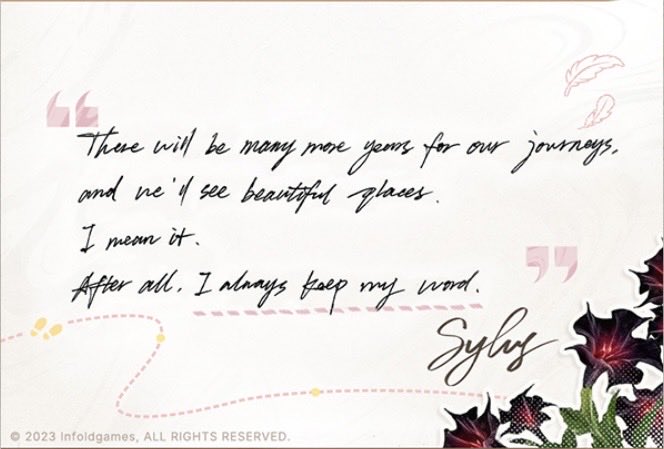 “
There will be many more years for our journeys,
and we'll see beautiful places.
I mean it.
After all, I always keep my word.
”
Sylus
© 2023 Infoldgames, ALL RIGHTS RESERVED.